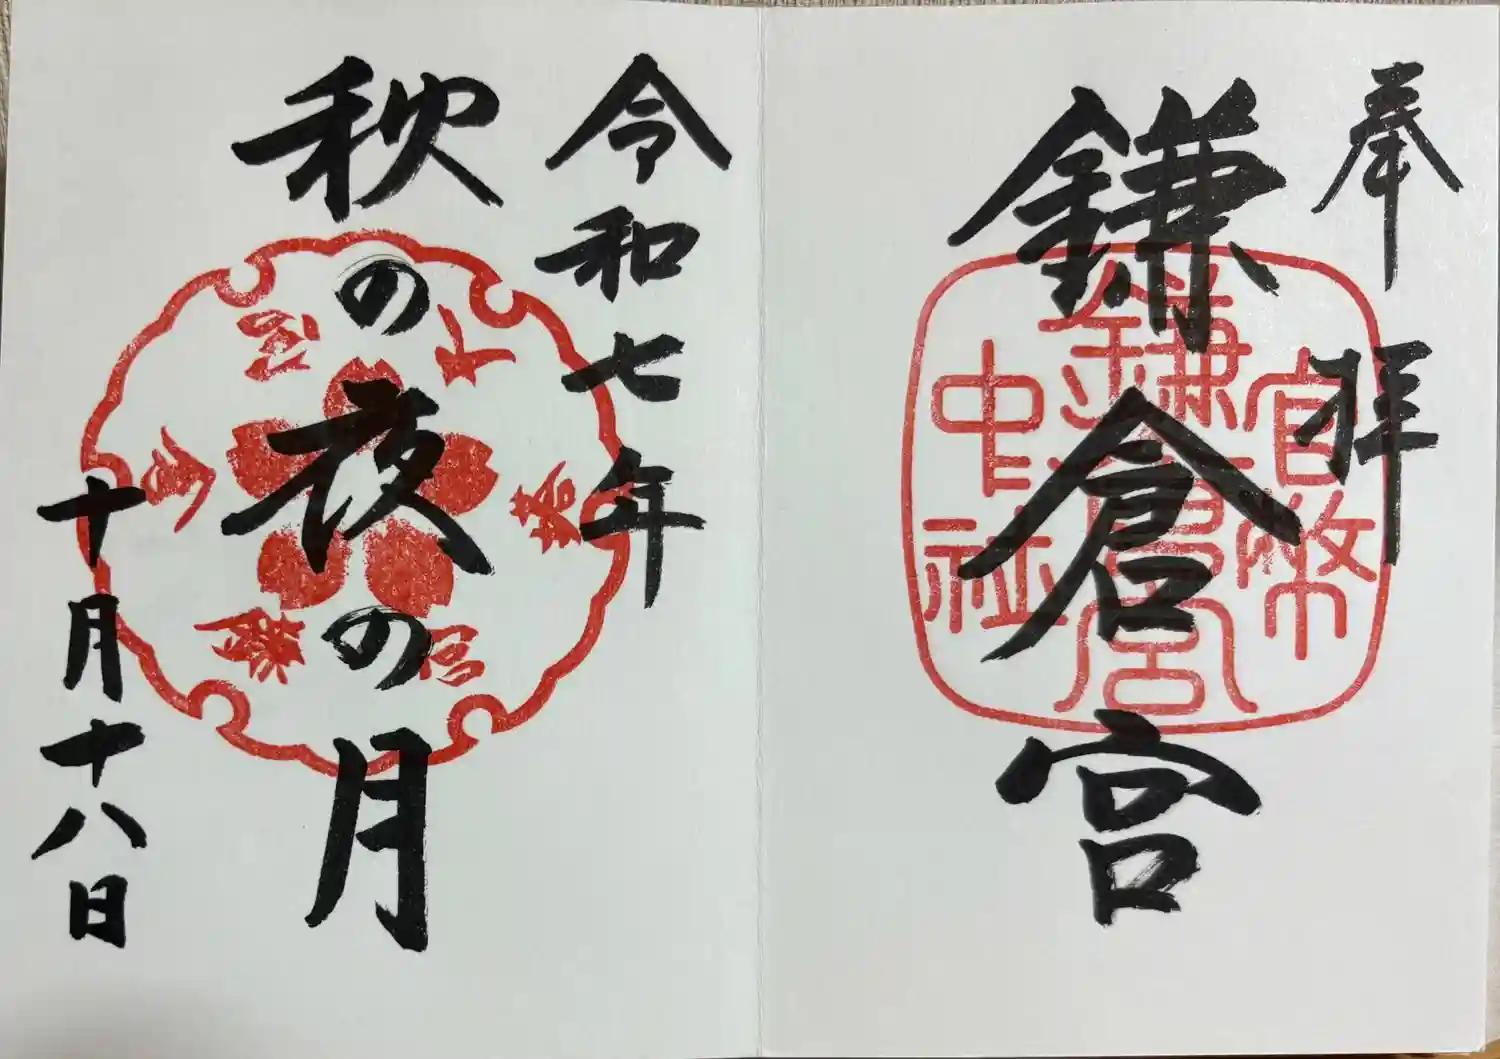 奉拝
鎌倉宮
官幣
鎌倉宮
中社
令和七年
秋の夜の月
十月十八日